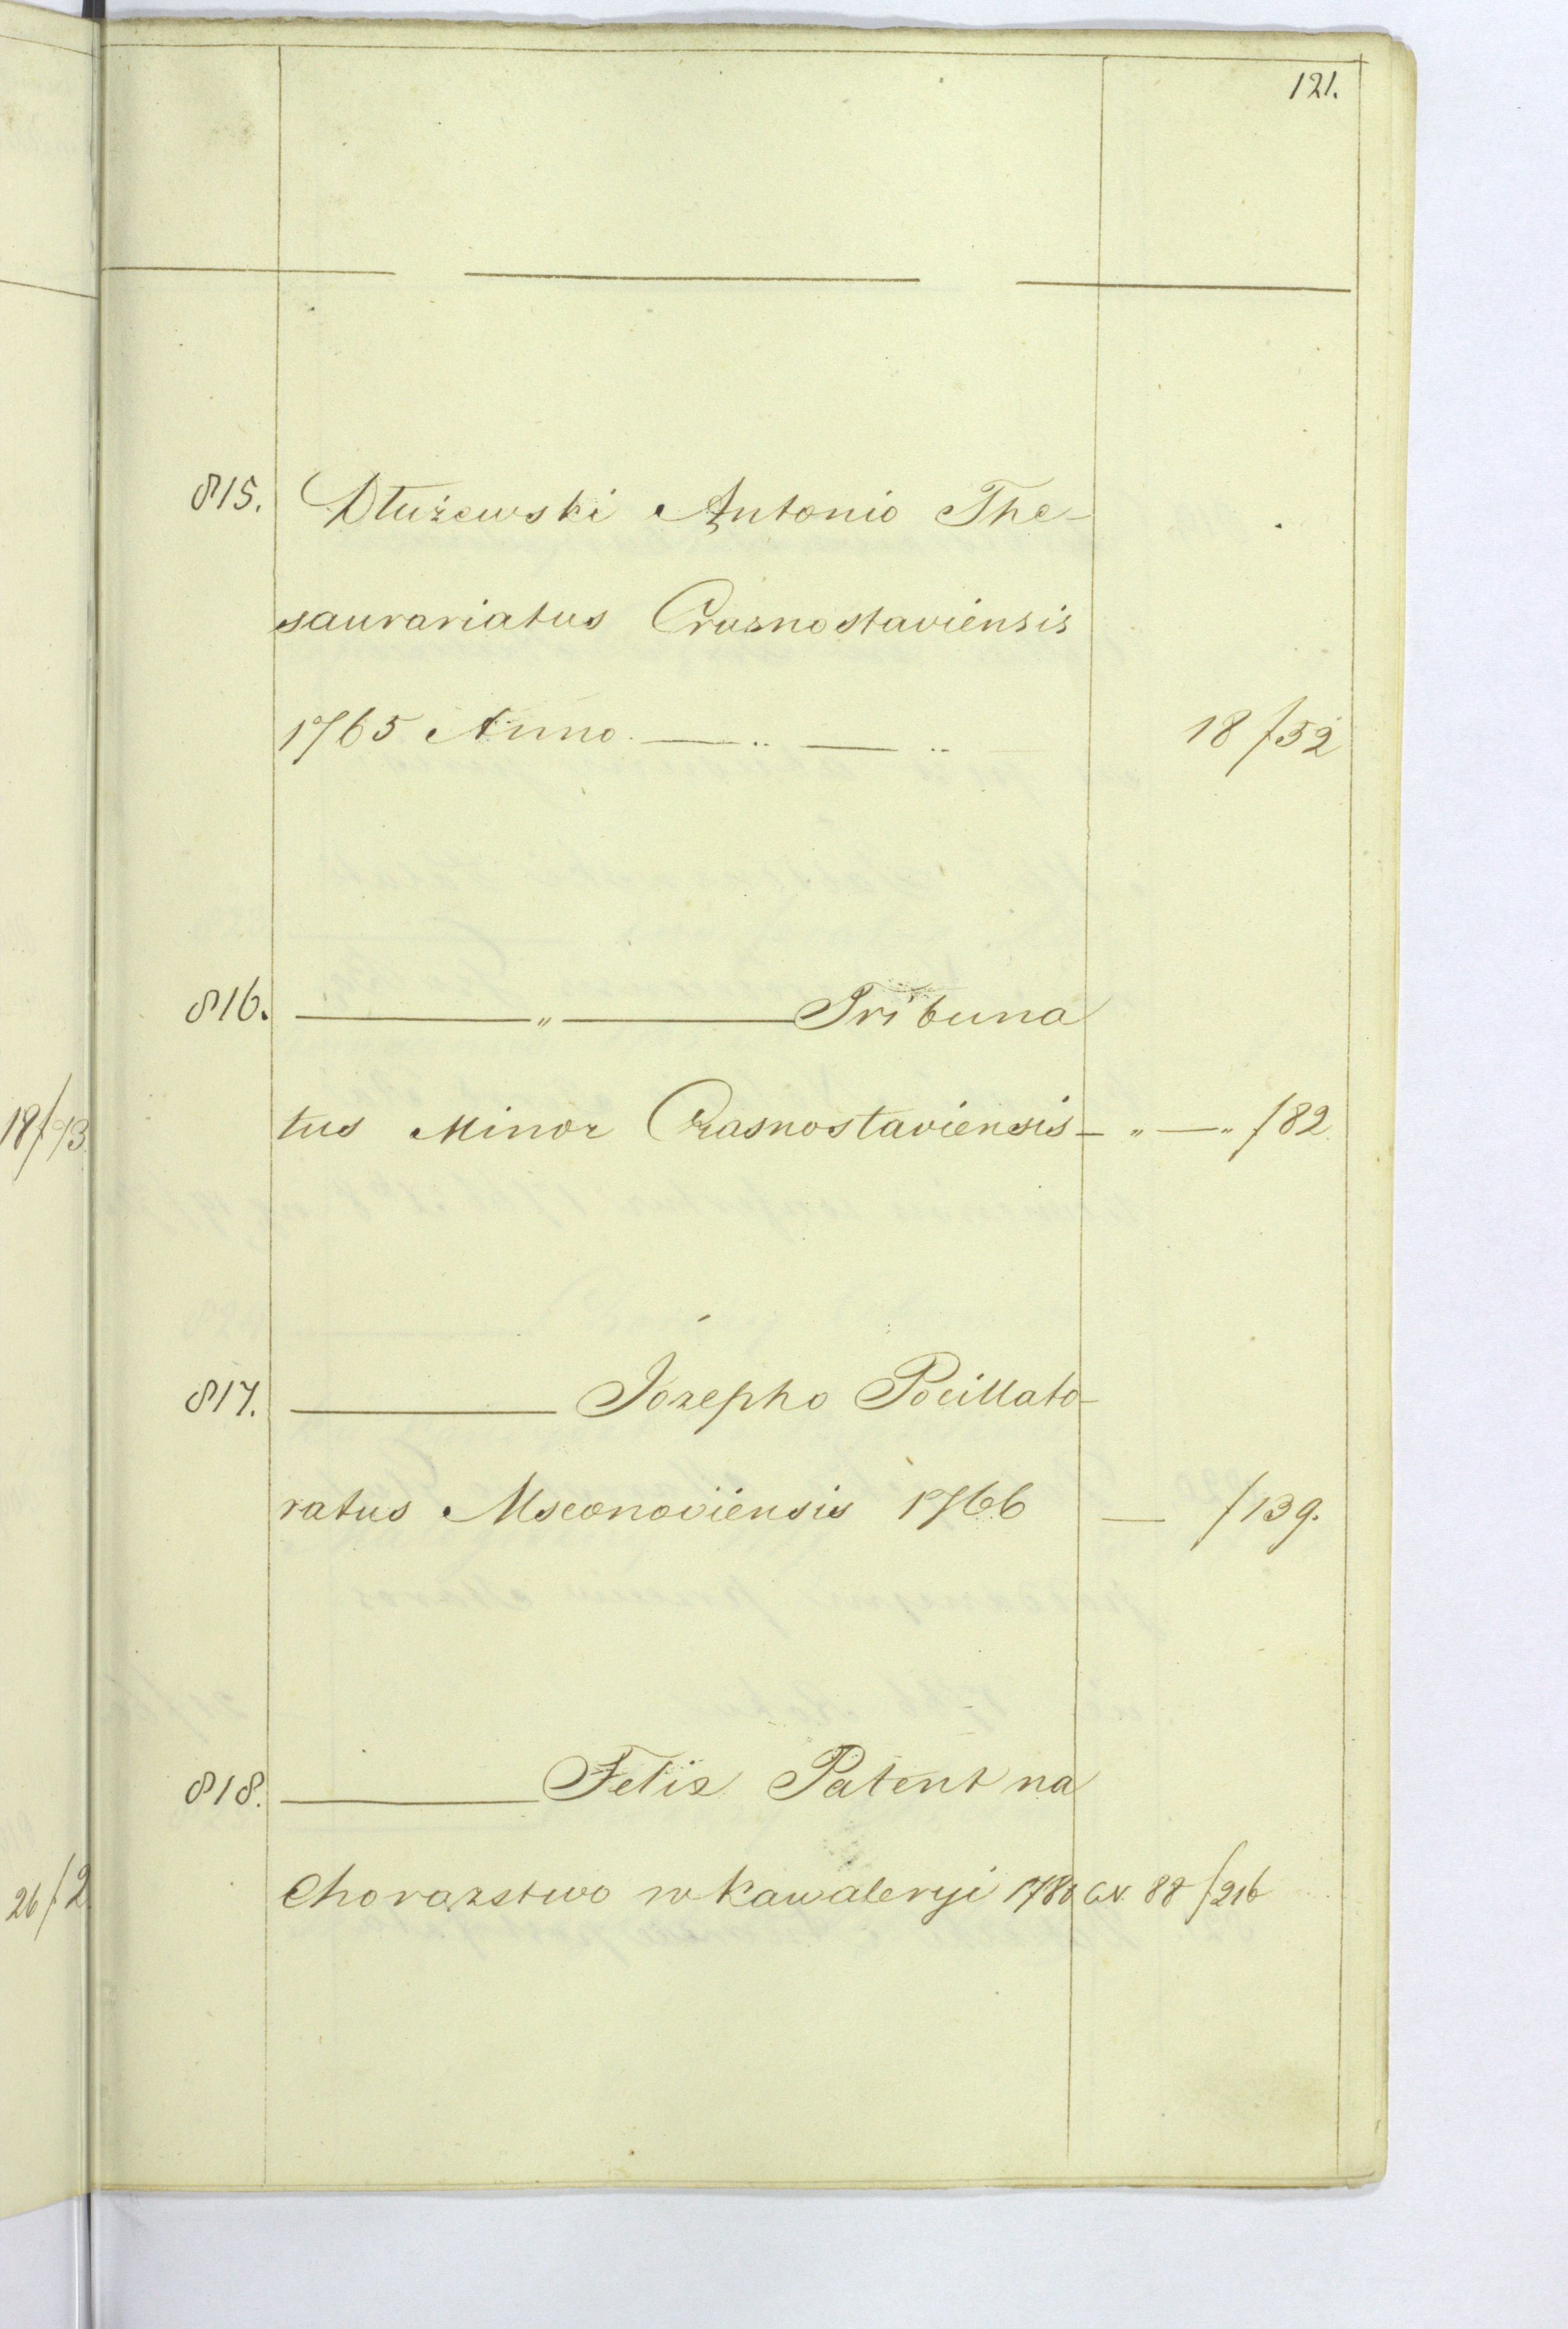 121.
815. Dłużewski Antonio The-
saurariatus Crasnostaviensis
1765 Anno. — „ — „ 18/52
816. — „ — Tribuna
tus Minor Crasnostaviensis — „ — „ /82
817. — Jozepho Pocillato-
ratus Msconoviensis 1766 — /139.
818. — Felix Patent na
Chorazstwo w Kawaleryi 1780 88/216
18/73
26/2